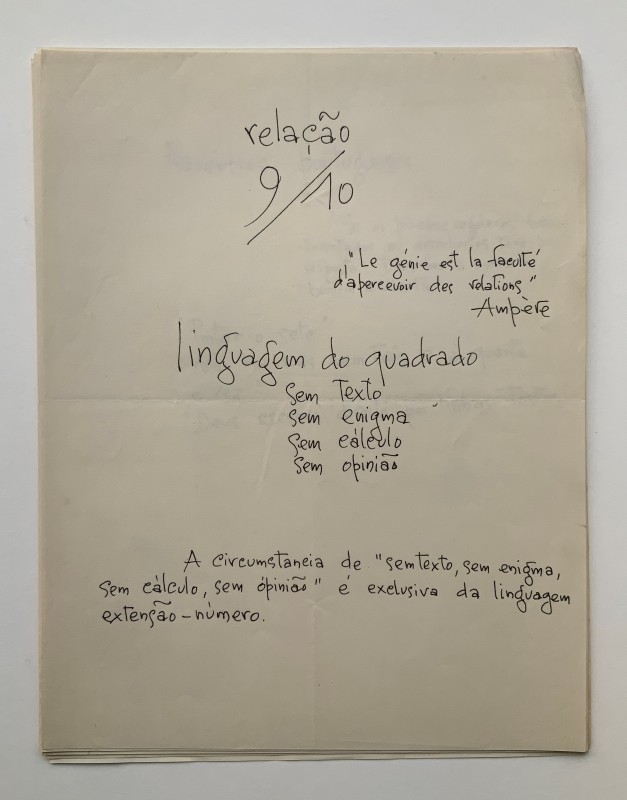 relação
9/10
"Le génie est la faculté
d'apercevoir des relations"
Ampère
linguagem do quadrado
sem texto
sem enigma
sem cálculo
sem opinião
A circumstancia de "sem texto, sem enigma,
sem cálculo, sem opinião" é exclusiva da linguagem
extensão-número.